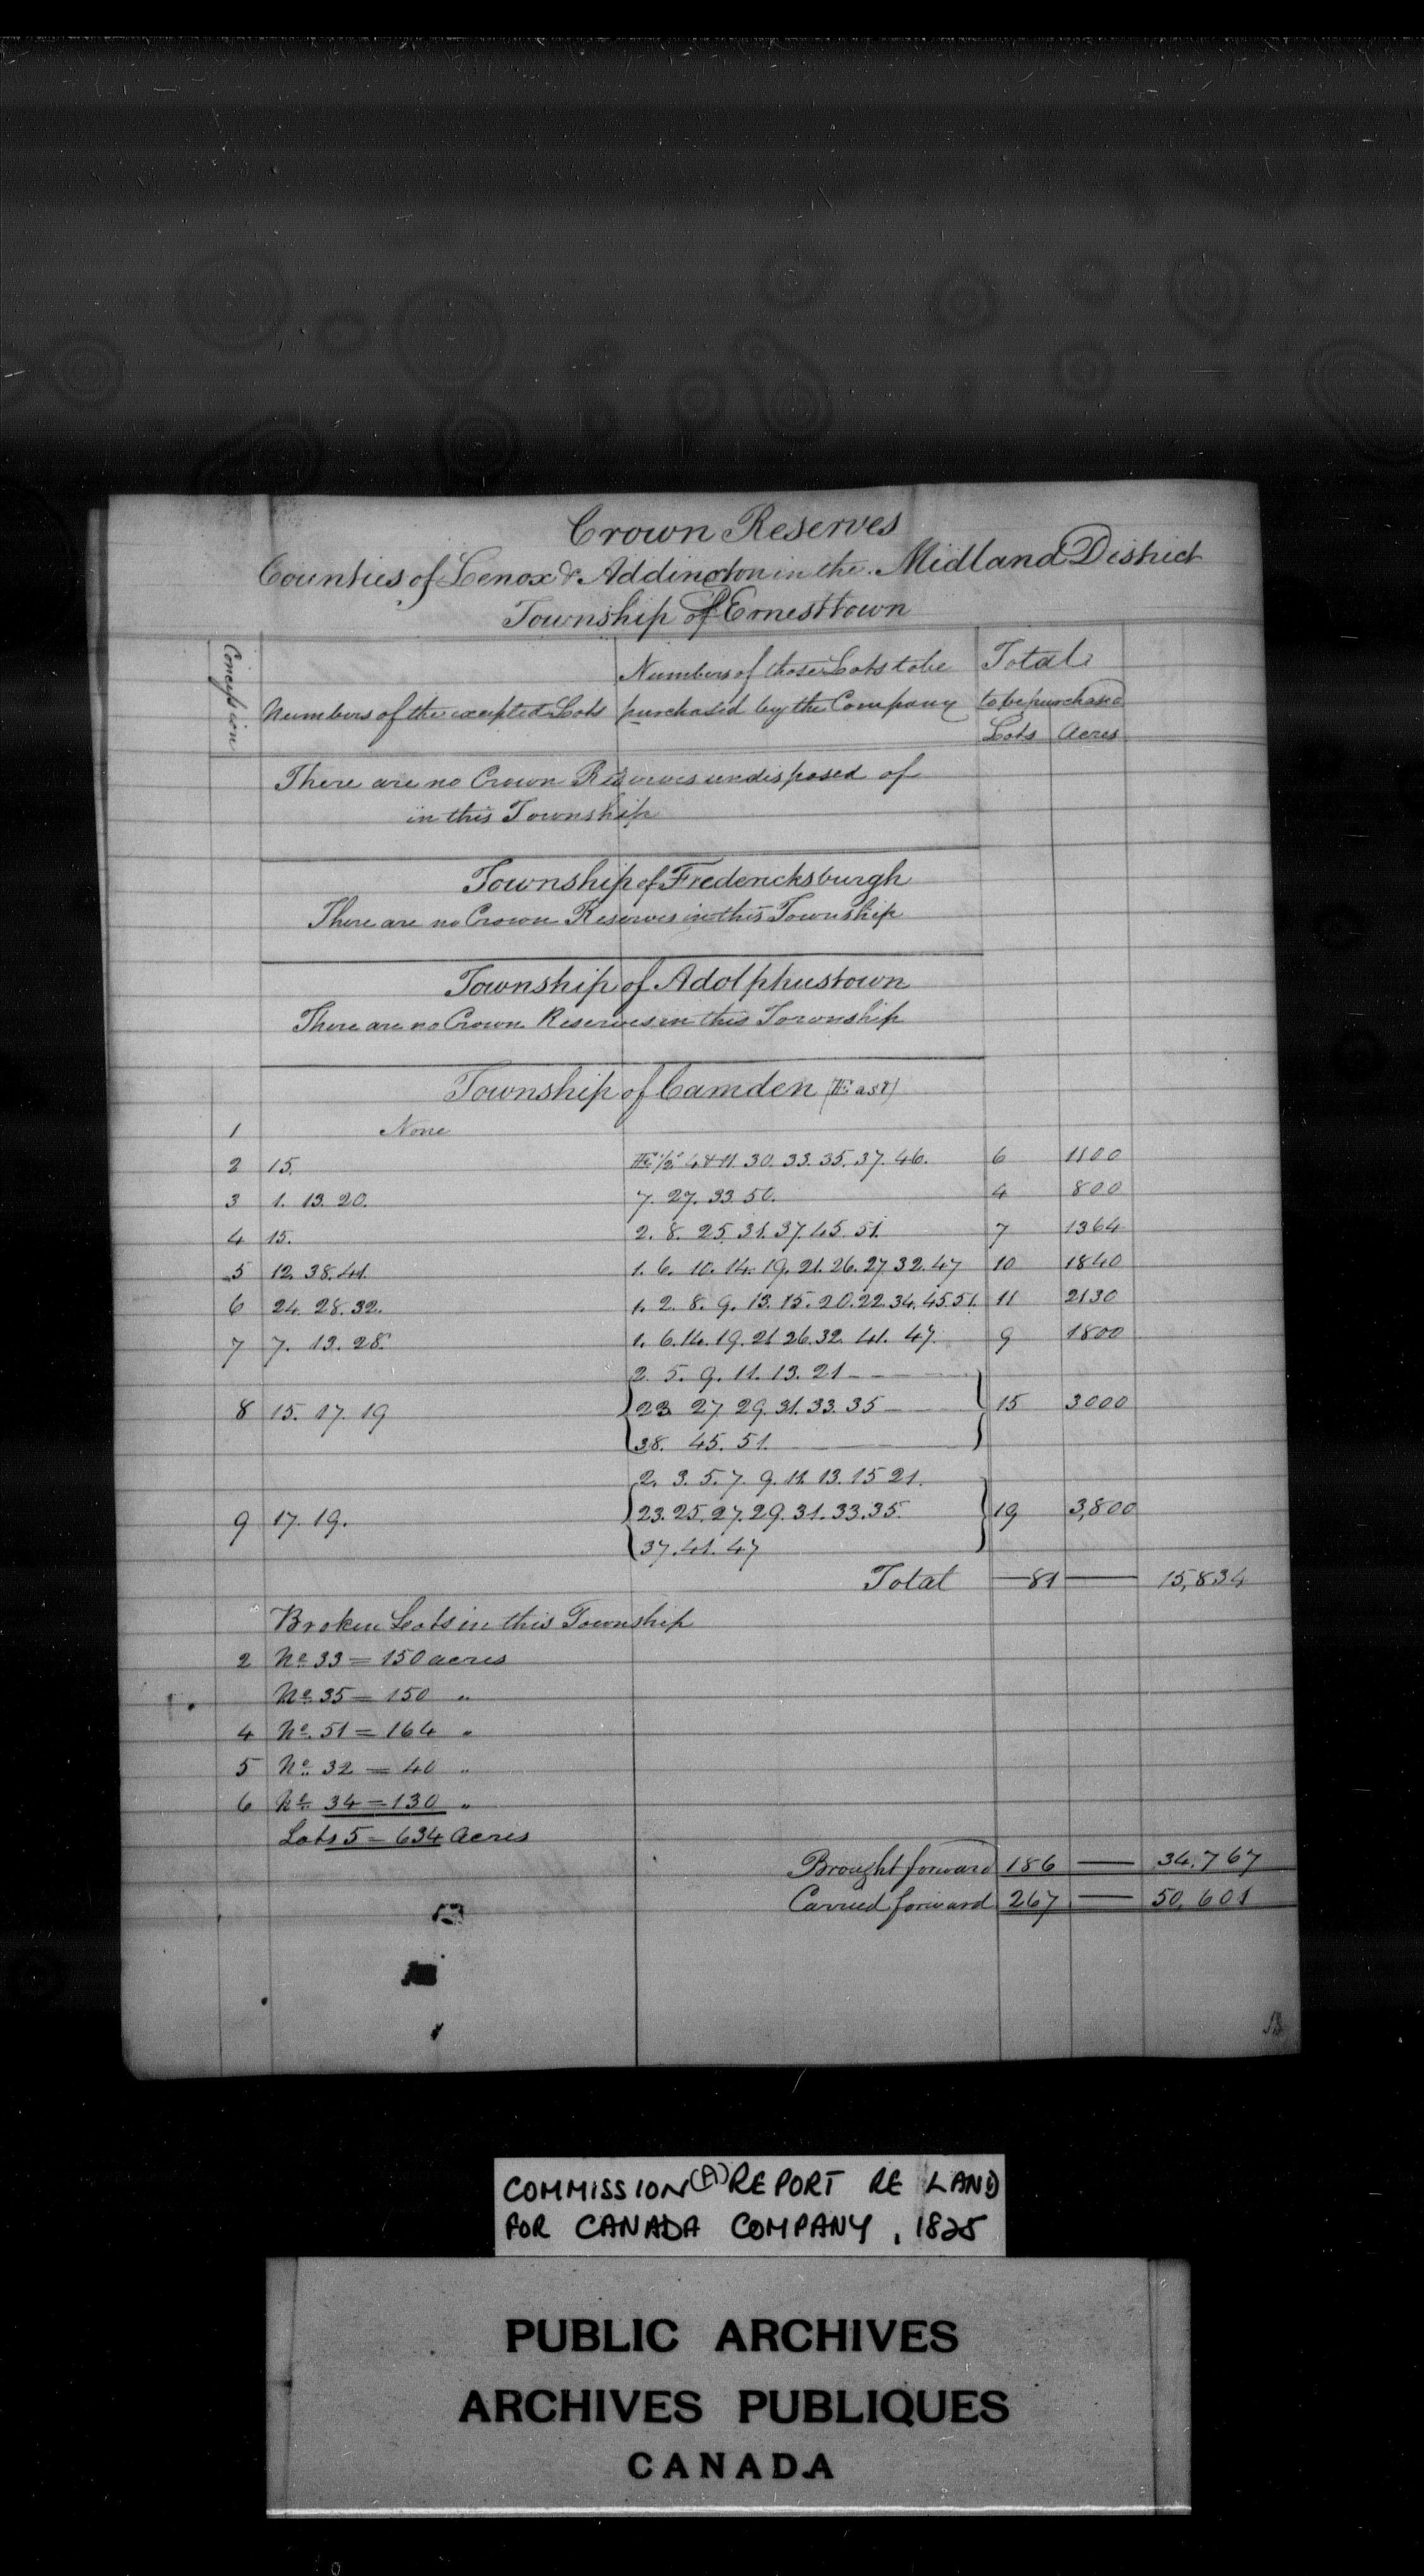 Crown Reserves
Counties of Lenox & Addington in the Midland District
Township of Ernesttown
Concession
Numbers of the excepted Lots
Numbers of those Lots to be
purchased by the Company
Total
to be purchased
Lots Acres
There are no Crown Reserves undisposed of
in this Township
Township of Fredericksburgh
There are no Crown Reserves in this Township
Township of Adolphustown
There are no Crown Reserves in this Township
Township of Camden (East)
1 None
2 15. E 1/2 4 & 11. 30. 33. 35. 37. 46. 6 1100
3 1. 13. 20. 7. 27. 33. 50. 4 800
4 15. 2. 8. 25. 31. 37. 45. 51. 7 1364
5 12. 38. 41. 1. 6. 10. 14. 19. 21. 26. 27 32. 47 10 1840
6 24. 28. 32. 1. 2. 8. 9. 13. 15. 20. 22. 34. 45. 51. 11 2130
7 7. 13. 28. 1. 6. 14. 19. 21 26. 32. 41. 47. 9 1800
2. 5. 9. 11. 13. 21
8 15. 17. 19 23. 27 29. 31. 33. 35 15 3000
38. 45. 51.
2. 3. 5. 7. 9. 11. 13. 15 21.
9 17. 19. 23. 25. 27. 29. 31. 33. 35. 19 3,800
37. 41. 47
Total 81 15,834
Broken Lots in this Township
2 No. 33 = 150 acres
No. 35 = 150 "
4 No. 51 = 164 "
5 No. 32 = 40 "
6 No. 34 = 130 "
Lots 5 = 634 Acres
Brought forward 186 34,767
Carried forward 267 50,601
COMMISSION (A) REPORT RE LAND
FOR CANADA COMPANY, 1825
PUBLIC ARCHIVES
ARCHIVES PUBLIQUES
CANADA